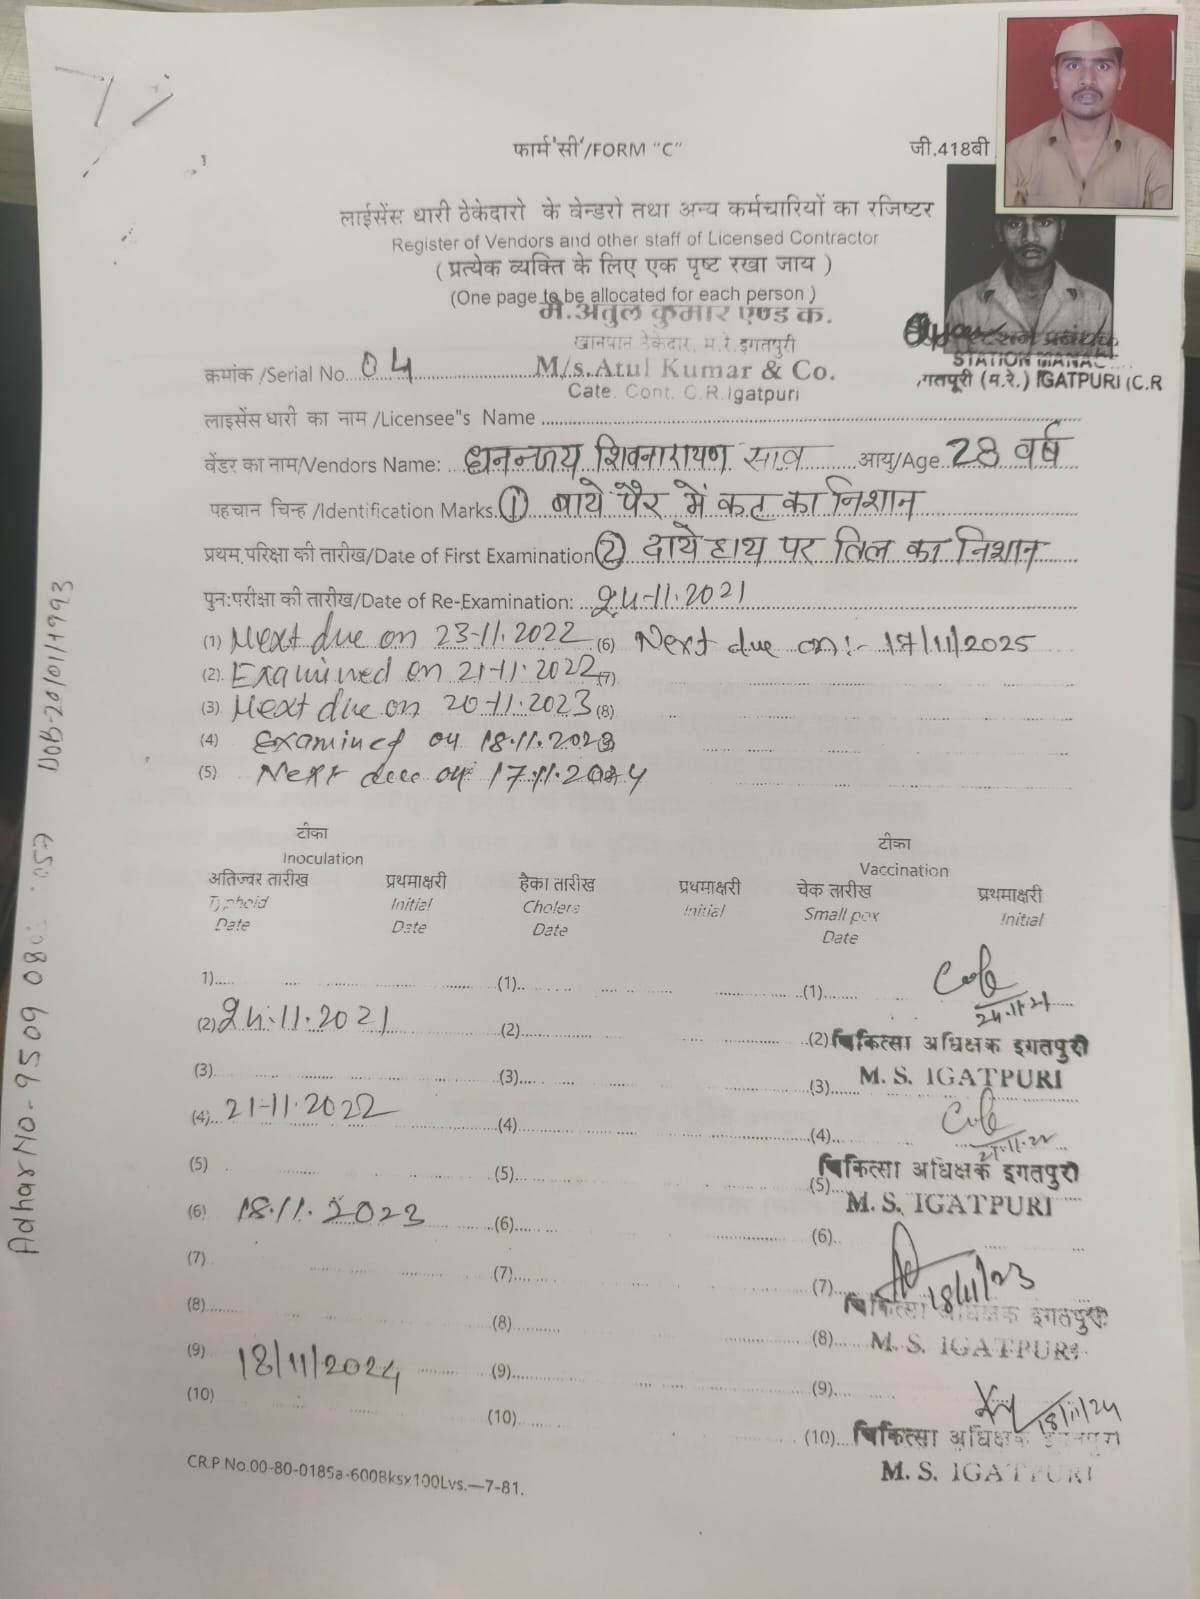 फार्म 'सी'/FORM "C"
जी.418बी
लाईसेंस धारी ठेकेदारो के वेन्डरो तथा अन्य कर्मचारियों का रजिष्टर
Register of Vendors and other staff of Licensed Contractor
( प्रत्येक व्यक्ति के लिए एक पृष्ट रखा जाय )
(One page to be allocated for each person )
मे.अतुल कुमार एण्ड क.
खानपान ठेकेदार, म.रे.इगतपुरी
M/s.Atul Kumar & Co.
Cate. Cont. C.R.Igatpuri
स्टेशन प्रबंधक
STATION MANAG
गतपूरी (म.रे.) IGATPURI (C.R
क्रमांक /Serial No. 04
लाइसेंस धारी का नाम /Licensee"s Name
वेंडर का नाम/Vendors Name: धनन्जय शिवनारायण साव आयु/Age 28 वर्ष
पहचान चिन्ह /Identification Marks. ① बाये पैर में कट का निशान
प्रथम परिक्षा की तारीख/Date of First Examination ② दाये हाथ पर तिल का निशान
पुन:परीक्षा की तारीख/Date of Re-Examination: 24-11.2021
(1) Next due on 23-11.2022 (6) Next due on:- 17/11/2025
(2). Examined on 21-11.2022 (7)
(3) Next due on 20-11.2023 (8)
(4) Examined on 18.11.2023
(5) Next due on 17.11.2024
टीका
Inoculation
टीका
Vaccination
अतिज्वर तारीख प्रथमाक्षरी हैका तारीख प्रथमाक्षरी चेक तारीख प्रथमाक्षरी
Typhoid Initial Cholera Initial Small pox Initial
Date Date Date Date
1) (1) (1)
24.11.21
(2) 24.11.2021 (2) (2) चिकित्सा अधिक्षक इगतपुरी
(3) (3) (3) M. S. IGATPURI
(4) 21-11.2022 (4) (4)
21.11.22
(5) (5) (5) चिकित्सा अधिक्षक इगतपुरी
M. S. IGATPURI
(6) 18.11.2023 (6) (6)
(7) (7) (7) 18/11/23
चिकित्सा अधिक्षक इगतपुरी
(8) (8) (8) M. S. IGATPURI
(9) 18/11/2024 (9) (9)
18/11/24
(10) (10) (10) चिकित्सा अधिक्षक इगतपुरी
M. S. IGATPURI
CR.P.No.00-80-0185a-600Bksx100Lvs.—7-81.
Adhar No- 9509 080 057 DOB-20/01/1993